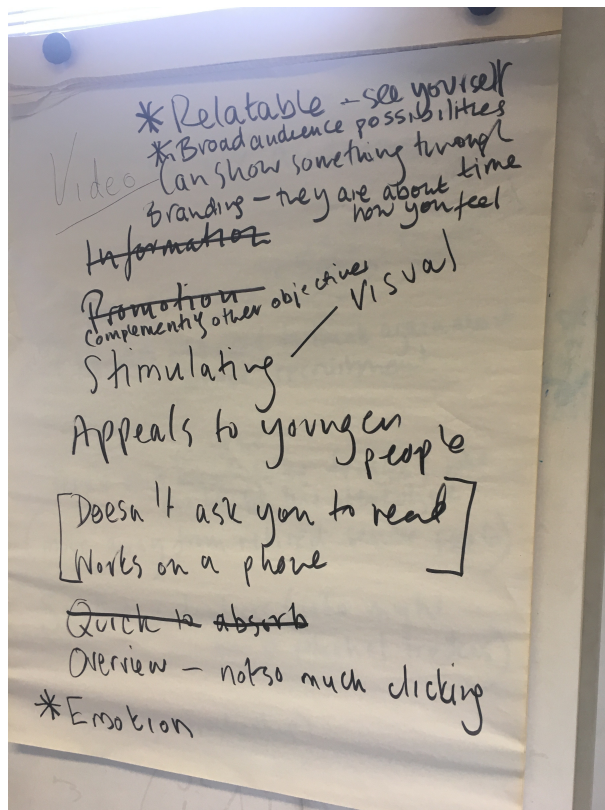 * Relatable - see yourself
* Broad audience possibilities
Video
Can show something through time
Branding - they are about how you feel
Information
Promotion
complementing other objectives
Stimulating
Visual
Appeals to younger people
[Doesn't ask you to read
Works on a phone]
Quick to absorb
Overview - not so much clicking
* Emotion